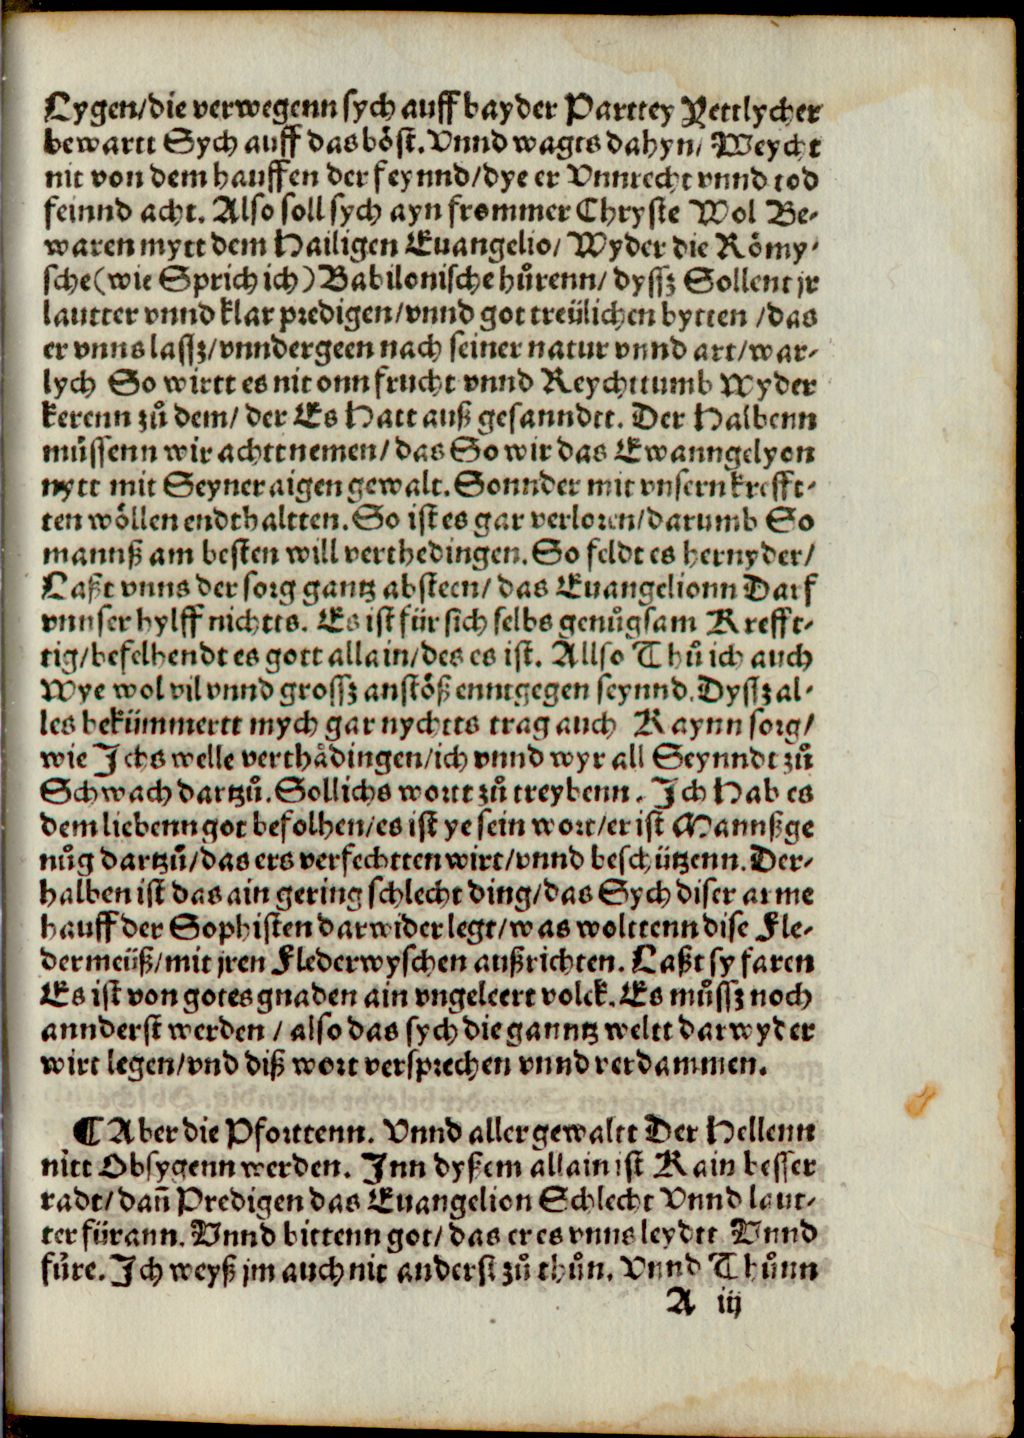 Lygen/die verwegenn sych auff bayder Parttey Yettlycher
bewartt Sych auff das bôst. Vnnd wagts dahyn/ Weycht
nit von dem hauffen der feynnd/dye er Vnnrecht vnnd tod
feinnd acht. Also soll sych ayn frommer Chryste Wol Be⸗
waren mytt dem Hailigen Euangelio/ Wyder die Rômy⸗
sche (wie Sprich ich) Babilonische hůrenn/ dyssz Sollent jr
lautter vnnd klar predigen/vnnd got treülichen bytten /das
er vnns lassz/vnndergeen nach seiner natur vnnd art/war⸗
lych So wirtt es nit onn frucht vnnd Reychttumb Wyder
kerenn zů dem/ der Es Hatt auß gesanndtt. Der Halbenn
můssenn wir achtt nemen/ das So wir das Ewanngelyon
nytt mit Seyner aigen gewalt. Sonnder mit vnsern krefft⸗
ten wôllen endthaltten. So ist es gar verloren/darumb So
mannß am besten will verthedingen. So feldt es hernyder/
Laßt vnns der sorg gantz absteen/ das Euangelionn Darf
vnnser hylff nichtts. Es ist für sich selbs genůgsam Krefft⸗
tig/befelhendt es gott allain/des es ist. Allso Thů ich auch
Wye wol vil vnnd grossz anstôß enntgegen seynnd. Dyssz al⸗
les bekümmertt mych gar nychtts trag auch Kaynn sorg/
wie Ichs welle verthådingen/ich vnnd wyr all Seynndt zů
Schwach dartzů. Sollichs wortt zů treybenn. Ich Hab es
dem liebenn got befolhen/es ist ye sein wort/er ist Mannß ge
nůg dartzů/das ers verfechtten wirt/vnnd beschützenn. Der⸗
halben ist das ain gering schlecht ding/das Sych diser arme
hauff der Sophisten darwider legt/was wolttenn dise Fle⸗
dermeüß/mit jren Flederwyschen außrichten. Laßt sy faren
Es ist von gotes gnaden ain vngeleert volck. Es můssz noch
annderst werden / also das sych die ganntz weltt darwyder
wirt legen/vnd diß wort versprechen vnnd verdammen.

¶ Aber die Pforttenn. Vnnd aller gewaltt Der Hellenn
nitt Obsygenn werden. Inn dyßem allain ist Kain besser
radt/dañ Predigen das Euangelion Schlecht Vnnd laut⸗
ter fürann. Vnnd bittenn got/ das er es vnns leydtt Vnnd
fůre. Ich weyß jm auch nit anderst zů thůn. Vnnd Thůnn
A iij